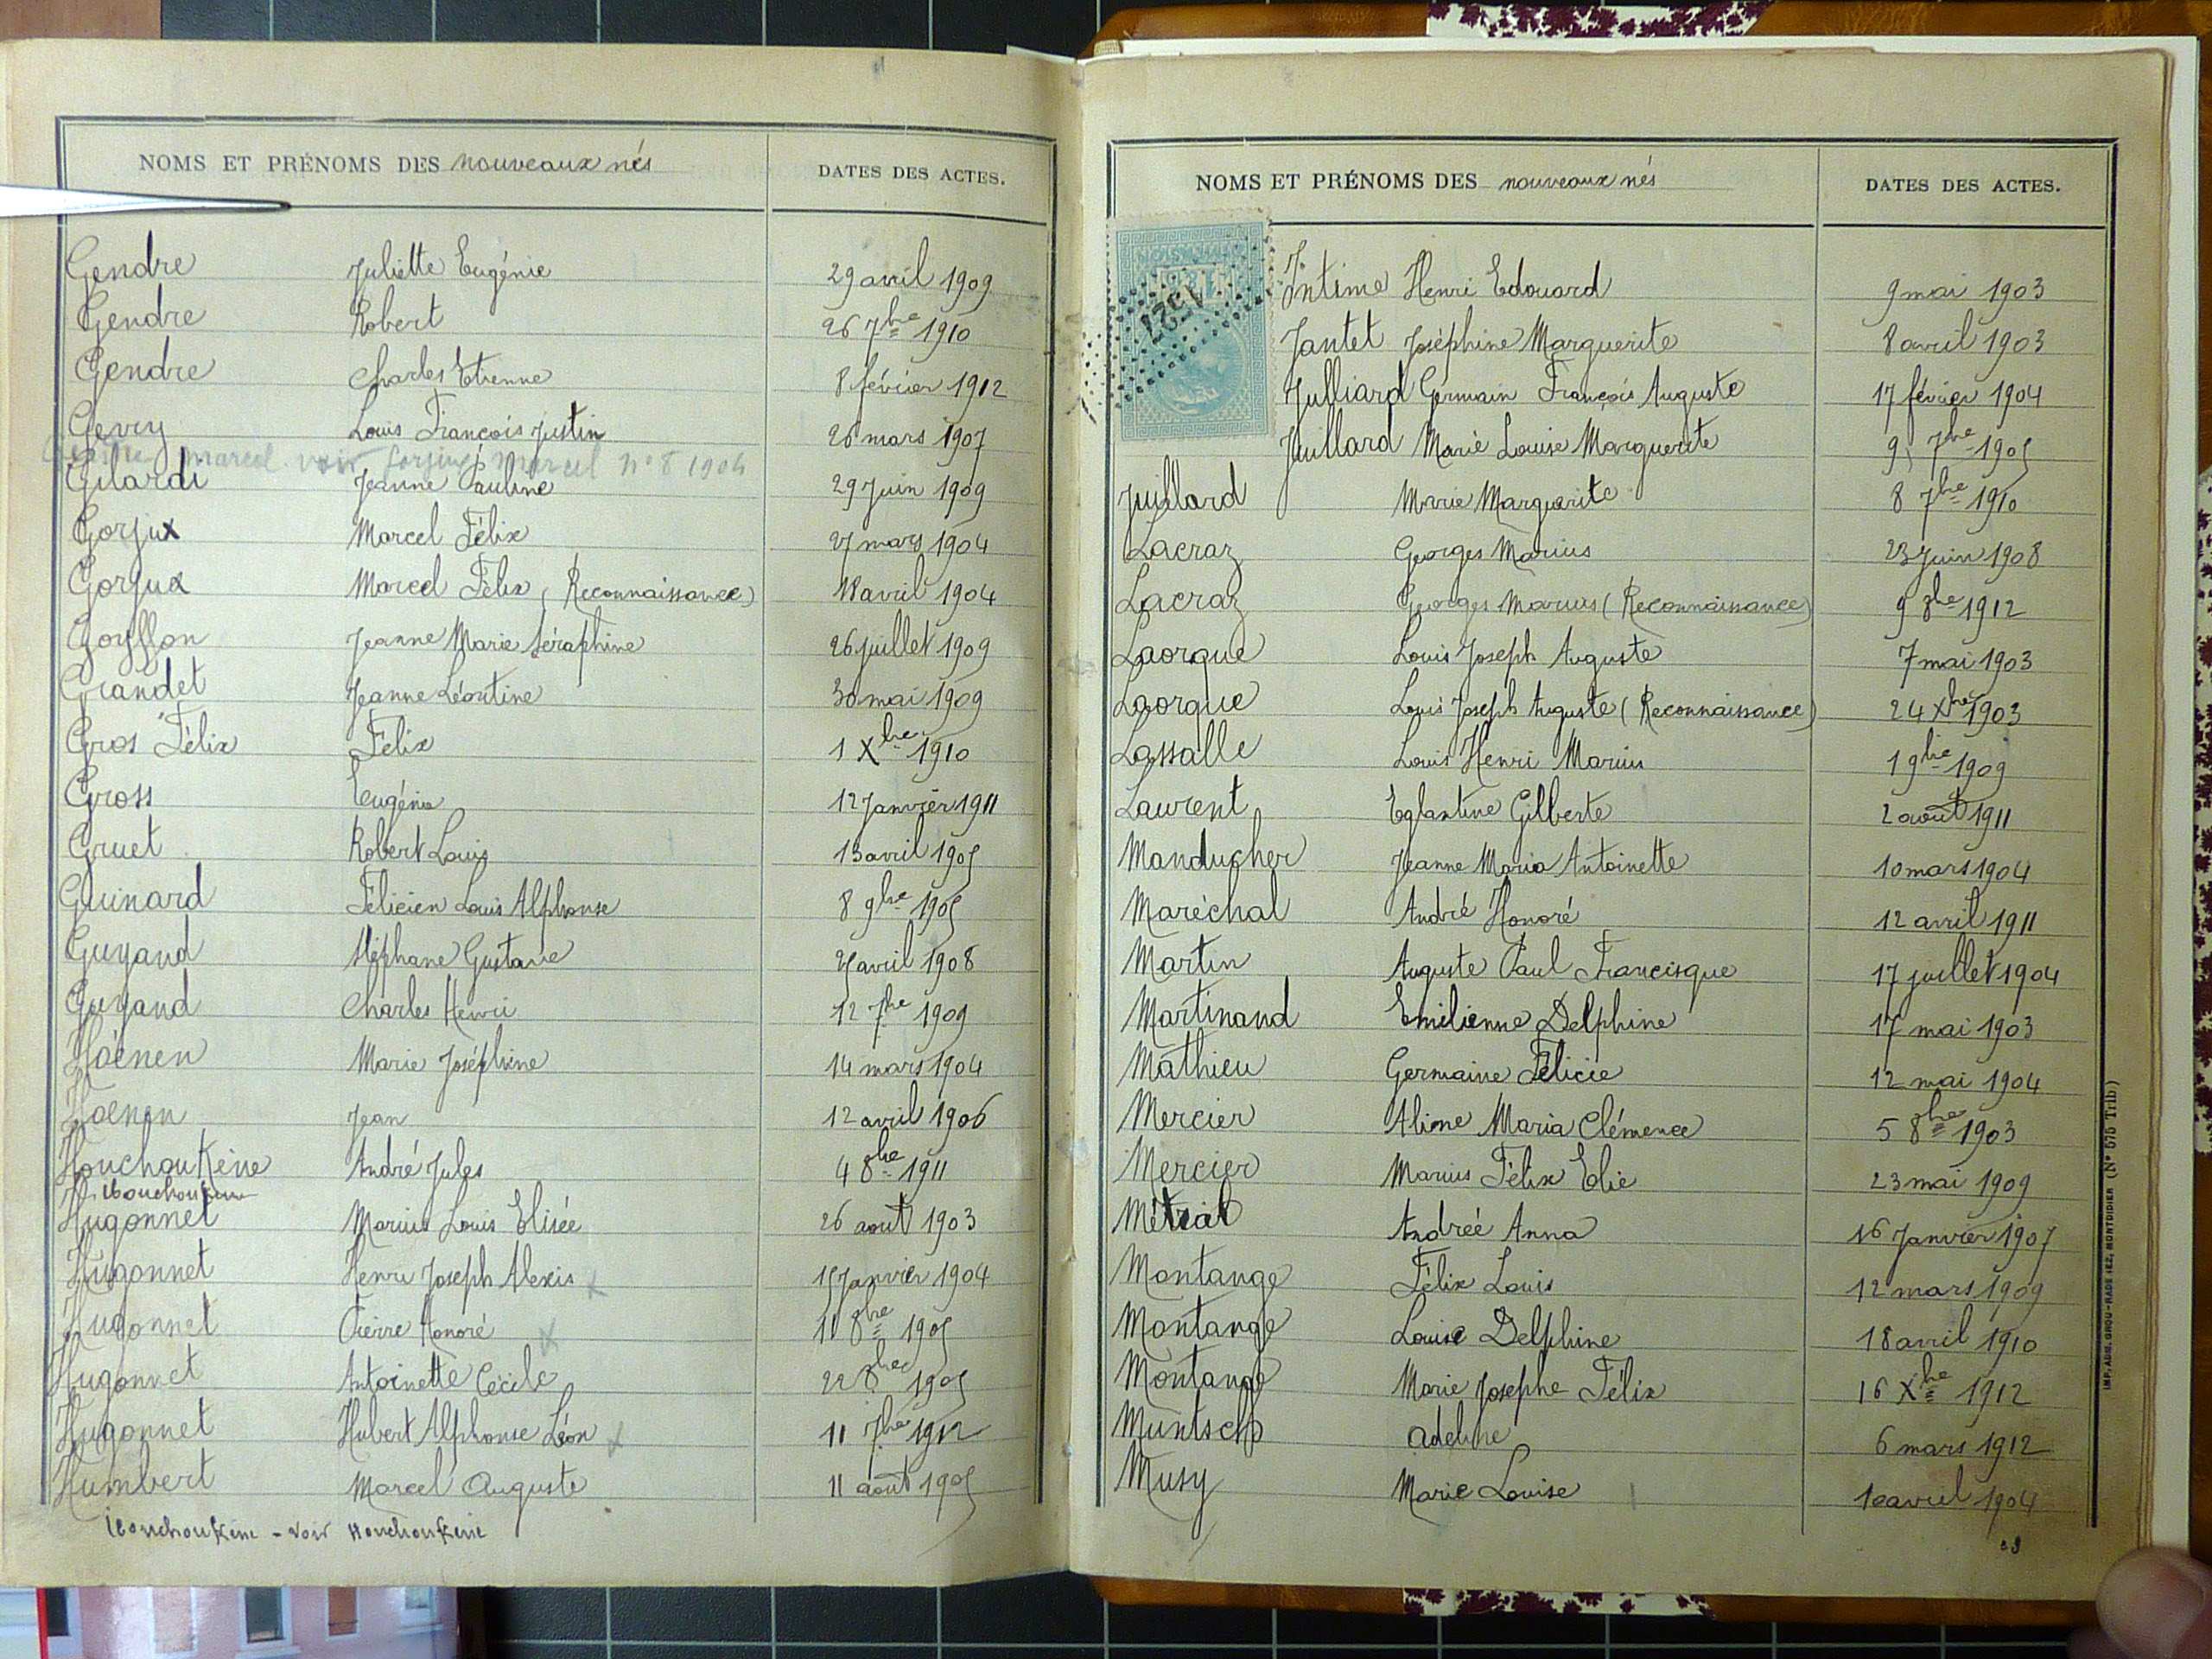 NOMS ET PRÉNOMS DES nouveaux nés DATES DES ACTES.
Gendre Juliette Eugénie 29 avril 1909
Gendre Robert 26 7bre 1910
Gendre Charles Etienne 8 février 1912
Gevry Louis François Justin 26 mars 1907
marcel voir Gorjux Marcel n° 8 1904
Gilardi Jeanne Pauline 29 Juin 1909
Gorjux Marcel Félix 27 mars 1904
Gorjux Marcel Félix (Reconnaissance) 18 avril 1904
Goyffon Jeanne Marie Séraphine 26 juillet 1909
Grandet Jeanne Léontine 30 mai 1909
Gros Félix Félix 1 Xbre 1910
Gross Eugénie 12 Janvier 1911
Gruet Robert Louis 13 avril 1905
Guinard Félicien Louis Alphonse 8 9bre 1905
Guyand Stéphane Gustave avril 1908
Guyand Charles Henri 12 7bre 1909
Hoenen Marie Joséphine 14 mars 1904
Hoenen Jean 12 avril 1906
Houchoukène André Jules 4 8bre 1911
Ibouchoukene
Hugonnet Marius Louis Elisée 26 aout 1903
Hugonnet Henri Joseph Alexis x 15 Janvier 1904
Hugonnet Pierre Honoré x 10 8bre 1905
Hugonnet Antoinette Cécile 22 8bre 1905
Hugonnet Hubert Alphonse Léon x 11 7bre 1912
Humbert Marcel Auguste 11 août 1905
Ibouchoukène - voir Houchoukène
NOMS ET PRÉNOMS DES nouveaux nés DATES DES ACTES.
1527
Intime Henri Edouard 9 mai 1903
Jantet Joséphine Marguerite 8 avril 1903
Julliard Germain François Auguste 17 février 1904
Juillard Marie Louise Marguerite 9 7bre 1905
Juillard Marie Marguerite 8 7bre 1910
Lacraz Georges Marius 23 Juin 1908
Lacraz Georges Marius (Reconnaissance) 9 8bre 1912
Laorque Louis Joseph Auguste 7 mai 1903
Laorque Louis Joseph Auguste (Reconnaissance) 24 Xbre 1903
Lassalle Louis Henri Marius 1 9bre 1909
Laurent Eglantine Gilberte 2 août 1911
Manducher Jeanne Maria Antoinette 10 mars 1904
Maréchal André Honoré 12 avril 1911
Martin Auguste Paul Francisque 17 juillet 1904
Martinand Emilienne Delphine 17 mai 1903
Mathieu Germaine Félicie 12 mai 1904
Mercier Aliane Maria Clémence 5 8bre 1903
Mercier Marius Félix Elie 23 mai 1909
Métral Andrée Anna 16 Janvier 1907
Montange Félix Louis 12 mars 1909
Montange Louise Delphine 18 avril 1910
Montange Marie Josephe Félix 16 Xbre 1912
Muntsch Adeline 6 mars 1912
Musy Marie Louise 10 avril 1904
IMP. ADM. MONTDIDIER (N° 575 Trib)